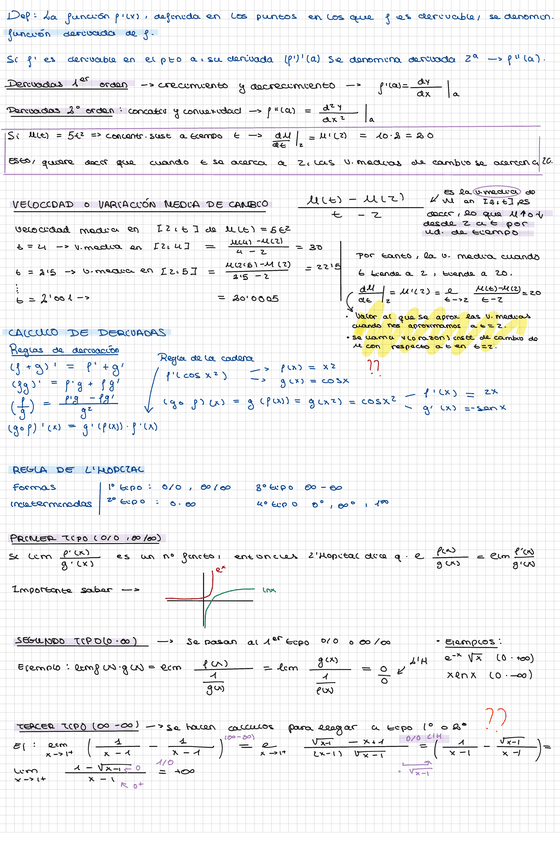 Def: La función f'(x), definida en los puntos en los que f es derivable, se denomin.
función derivada de f.
Si f' es derivable en el pto a, su derivada (f')'(a) se denomina derivada 2ª → f''(a).
Derivadas 1er orden → crecimiento y decrecimiento → f'(a) = dy/dx |a
Derivadas 2º orden: concav y convexidad → f''(a) = d²y/dx² |a
Si M(t) = 5t² => concentr. sust a tiempo t → dM/dt |2 = M'(2) = 10·2 = 20
Esto, quiere decir que cuando t se acerca a 2, las v. medias de cambio se acercan a 20.
VELOCIDAD O VARIACIÓN MEDIA DE CAMBIO M(t) - M(2) / t - 2
Es la v. media de
M en [2,t] es
decir, lo que M↑o↓
desde 2 a t por
ud. de tiempo
velocidad media en [2,t] de M(t) = 5t²
t = 4 → v. media en [2,4] = M(4)-M(2) / 4-2 = 30
t = 2'5 → v. media en [2,5] = M(2'5)-M(2) / 2'5-2 = 22'5
⋮
t = 2'001 → = 20'0005
Por tanto, la v. media cuando
t tiende a 2, tiende a 20.
dM/dt |2 = M'(2) = l t→2 M(t)-M(2) / t-2 = 20
• Valor al que se aprox las v. medias
cuando nos aproximamos a t=2.
• Se llama v(o razón) inst de cambio de
M con respecto a t en t=2.
??
CALCULO DE DERIVADAS
Reglas de derivación
(f+g)' = f' + g'
(fg)' = f'g + fg'
(f/g)' = f'g - fg' / g²
(g o f)'(x) = g'(f(x)) · f'(x)
Regla de la cadena
f'(cos x²) → f(x) = x²
→ g(x) = cosx
(g o f)(x) = g(f(x)) = g(x²) = cosx² f'(x) = 2x
g'(x) = -senx
REGLA DE L'HOPITAL
Formas
indeterminadas
1º tipo: 0/0, ∞/∞ 3º tipo ∞-∞
2º tipo: 0·∞ 4º tipo 0º, ∞º, 1^∞
PRIMER TIPO (0/0, ∞/∞)
Si lim f'(x)/g'(x) es un nº finito, entonces L'Hopital dice q. l f(x)/g(x) = lim f'(x)/g'(x)
Importante saber → e^x lnx
SEGUNDO TIPO (0·∞) → Se pasan al 1er tipo 0/0 o ∞/∞
Ejemplo: lim f(x)·g(x) = lim f(x) / 1/g(x) = lim g(x) / 1/f(x) = 0/0 L'H
• Ejemplos:
e^-x √x (0·+∞)
x lnx (0·-∞)
TERCER TIPO (∞-∞) → Se hacen calculos para llegar a tipo 1º o 2º ??
Ej: lim x→1+ (1/√x-1 - 1/x-1) (∞-∞) = l x→1+ √x-1 - x+1 / (x-1) √x-1 0/0 L'H = (1/x-1 - √x-1/x-1) =
· √x-1
lim x→1+ 1-√x-1 / x-1 →0 ↖ 0+ 1/0 = +∞